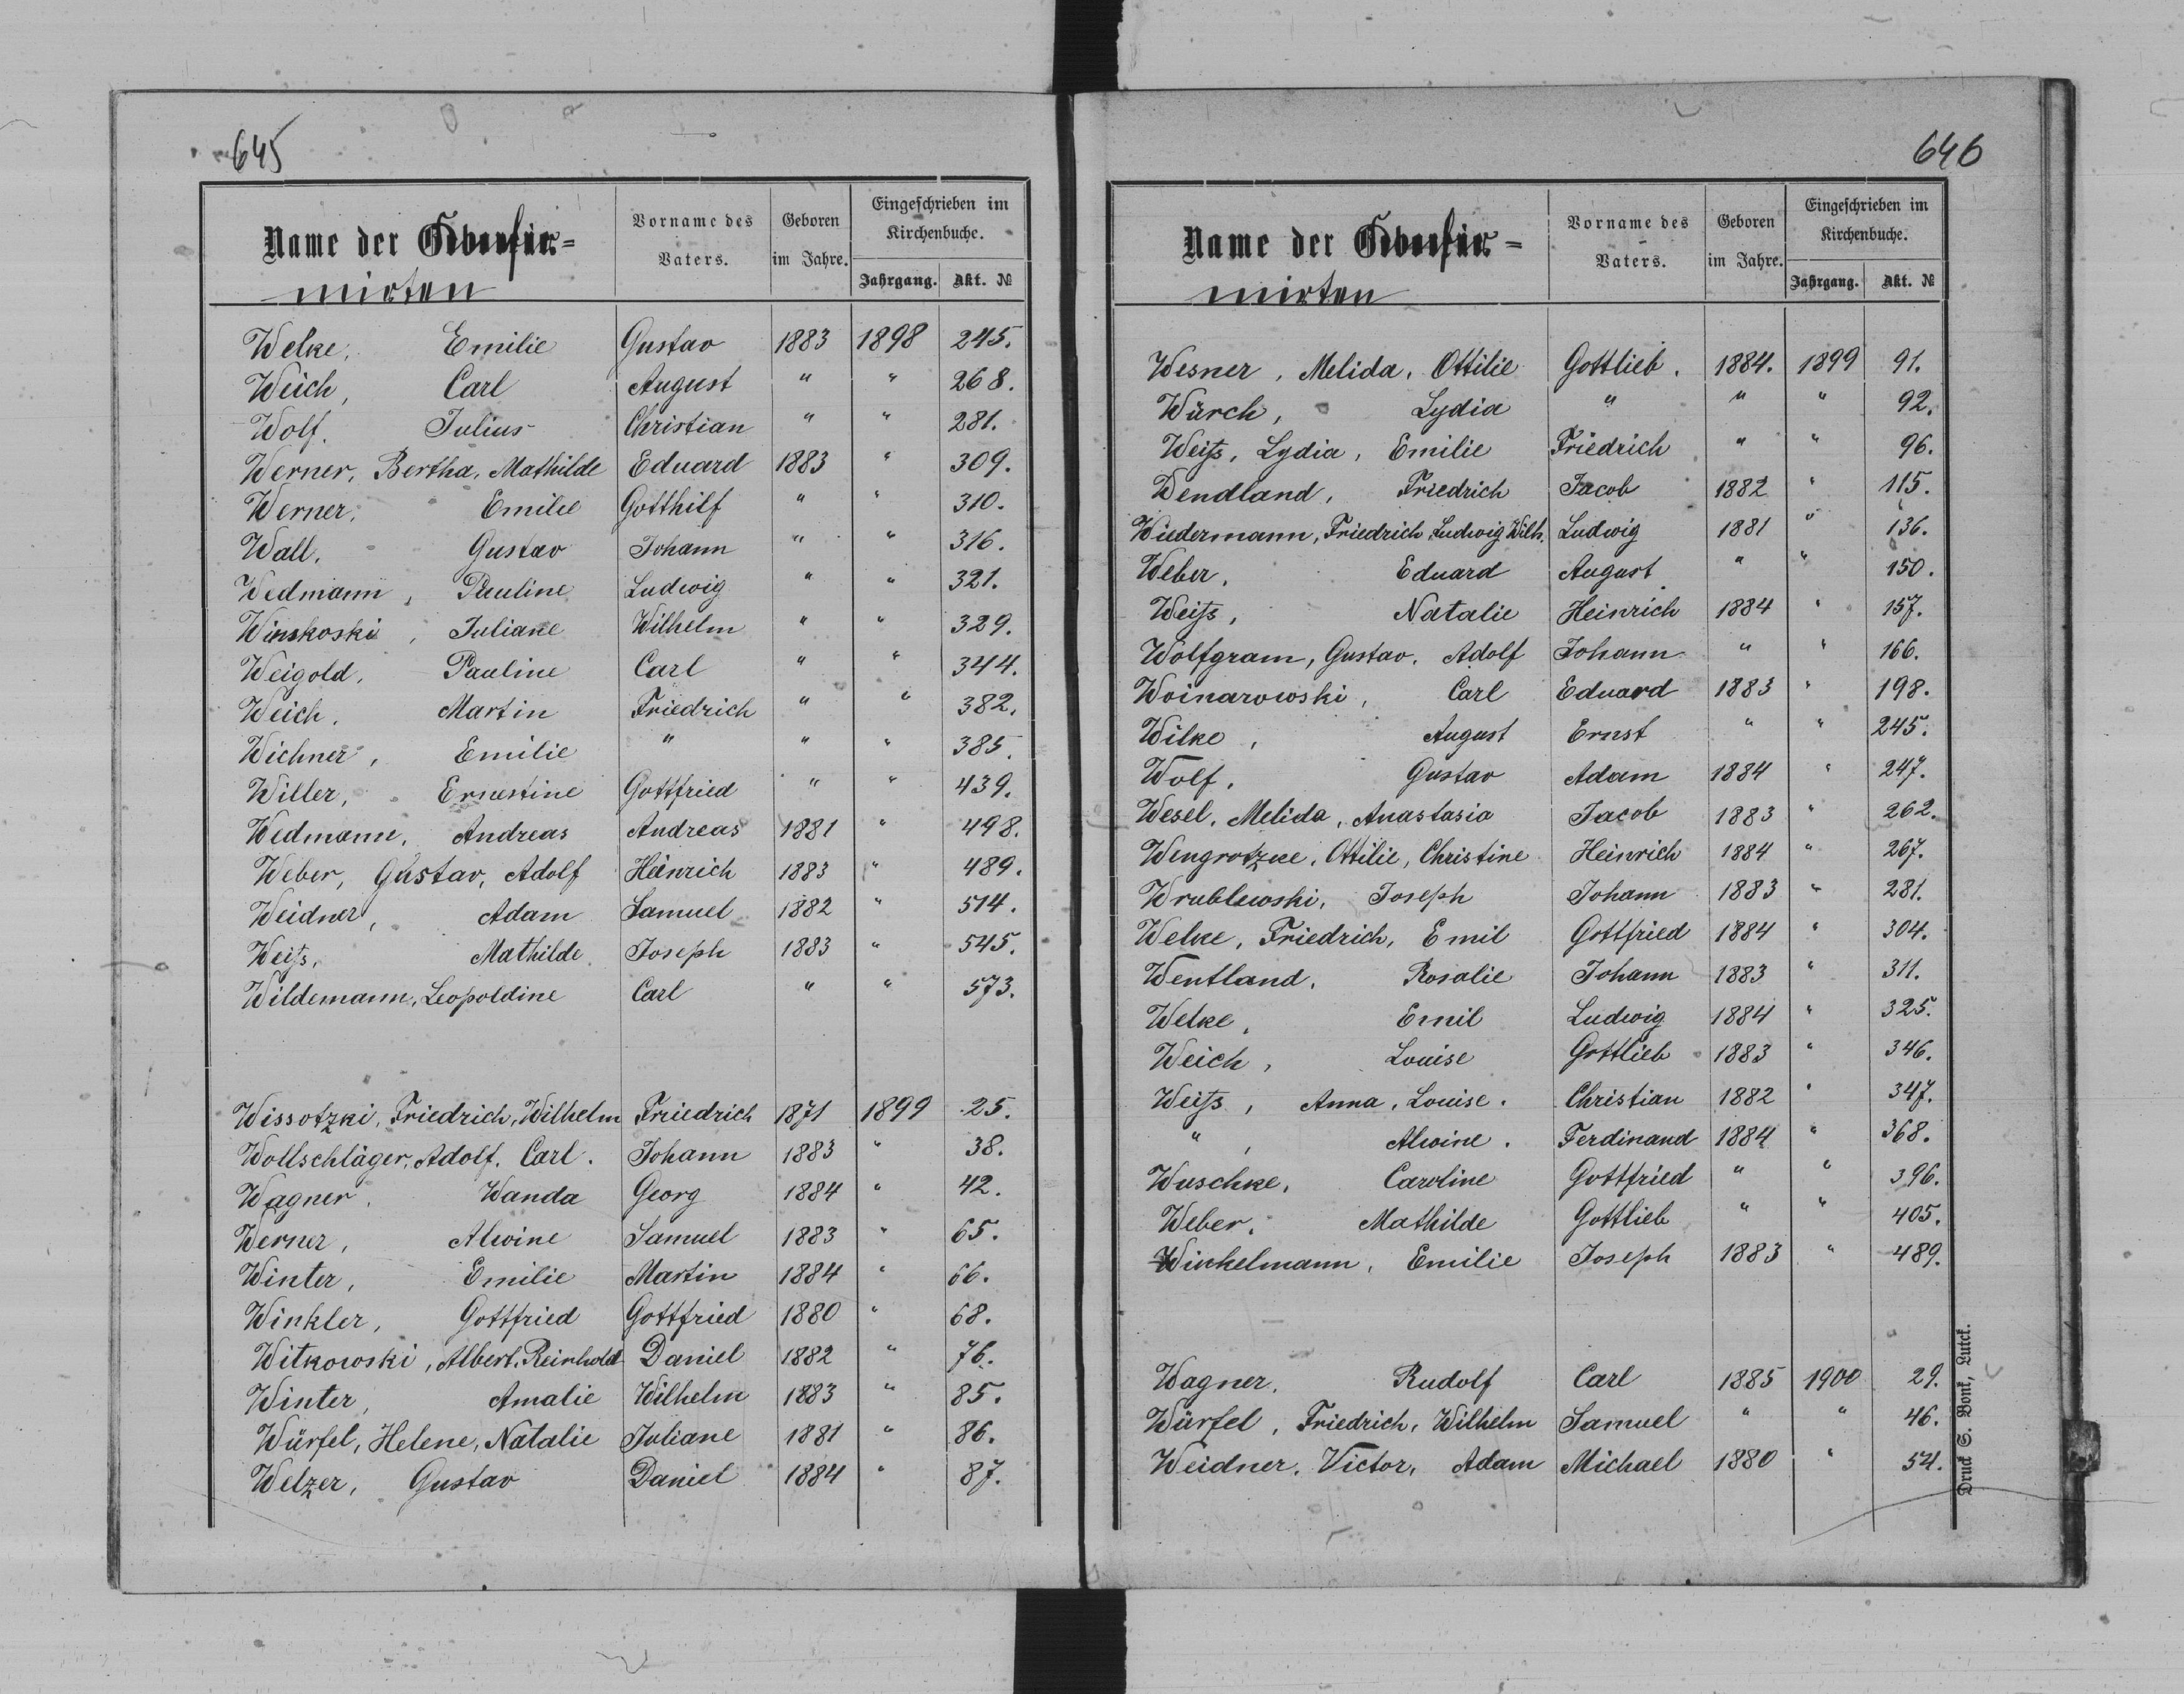 645
Name der Confir=
mirten
Vorname des
Vaters.
Geboren
im Jahre.
Eingeschrieben im
Kirchenbuche.
Jahrgang. Akt. №
Welke, Emilie Gustav 1883 1898 245.
Weich, Carl August " " 268.
Wolf. Julius Christian " " 281.
Werner, Bertha, Mathilde Eduard 1883 " 309.
Werner, Emilie Gotthilf " " 310.
Wall, Gustav Johann " " 316.
Wedmann, Pauline Ludwig " " 321.
Winskoski, Juliane Wilhelm " " 329.
Weigold, Pauline Carl " " 344.
Weich, Martin Friedrich " " 382.
Wichner, Emilie " " " 385.
Willer, Ernestine Gottfried " " 439.
Wedmann, Andreas Andreas 1881 " 498.
Weber, Gustav, Adolf Heinrich 1883 " 489.
Weidner, Adam Samuel 1882 " 514.
Weiſs, Mathilde Joseph 1883 " 545.
Wildemann, Leopoldine Carl " " 573.
Wissotzki, Friedrich, Wilhelm Friedrich 1871 1899 25.
Wollschläger, Adolf, Carl. Johann 1883 " 38.
Wagner, Wanda Georg 1884 " 42.
Werner, Alwine Samuel 1883 " 65.
Winter, Emilie Martin 1884 " 66.
Winkler, Gottfried Gottfried 1880 " 68.
Witkowski, Albert, Reinhold Daniel 1882 " 76.
Winter, Amalie Wilhelm 1883 " 85.
Würfel, Helene, Natalie Juliane 1881 " 86.
Welzer, Gustav Daniel 1884 " 87.
646
Name der Confir=
mirten
Vorname des
Vaters.
Geboren
im Jahre.
Eingeschrieben im
Kirchenbuche.
Jahrgang. Akt. №
Wesner, Melida, Ottilie Gottlieb. 1884. 1899 91.
Würch, Lydia " " " 92.
Weiſs, Lydia, Emilie Friedrich " " 96.
Wendland, Friedrich Jacob 1882 " 115.
Wiedermann, Friedrich, Ludwig, Wilh. Ludwig 1881 " 136.
Weber, Eduard August " " 150.
Weiſs, Natalie Heinrich 1884 " 157.
Wolfgram, Gustav, Adolf Johann " " 166.
Woinarowski, Carl Eduard 1883 " 198.
Wilke, August Ernst " " 245.
Wolf, Gustav Adam 1884 " 247.
Wesel, Melida, Anastasia Jacob 1883 " 262.
Wengrotzke, Ottilie, Christine Heinrich 1884 " 267.
Wrublewski, Joseph Johann 1883 " 281.
Welke, Friedrich, Emil Gottfried 1884 " 304.
Wentland, Rosalie Johann 1883 " 311.
Welke, Emil Ludwig 1884 " 325.
Weich, Louise Gottlieb 1883 " 346.
Weiſs, Anna, Louise. Christian 1882 " 347.
", Alwine. Ferdinand 1884 " 368.
Wuschke, Caroline Gottfried " " 396.
Weber, Mathilde Gottlieb " " 405.
Winkelmann, Emilie Joseph 1883 " 489.
Wagner, Rudolf Carl 1885 1900 29.
Würfel, Friedrich, Wilhelm Samuel " " 46.
Weidner, Victor, Adam Michael 1880 " 54.
Druck S. Bonk, Lutck.